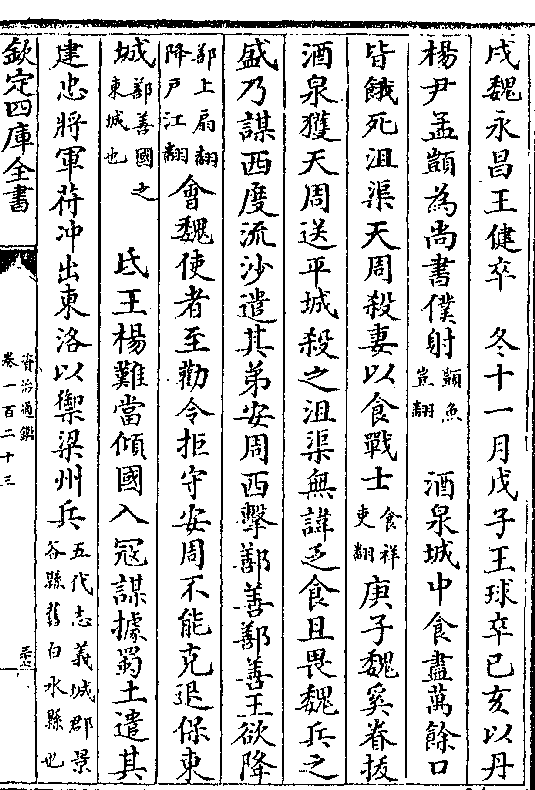 戌魏永昌王健卒　冬十一月戊子王球卒己亥以丹
楊尹孟顗爲尚書僕射顗魚豈翻　酒泉城中食盡萬餘口
皆餓死沮渠天周殺妻以食戰士食祥吏翻庚子魏奚眷拔
酒泉獲天周送平城殺之沮渠無諱乏食且畏魏兵之
盛乃謀西度流沙遣其弟安周西擊鄯善鄯善王欲降
鄯上扇翻降戸江翻會魏使者至勸令拒守安周不能克退保東
城鄯善國之東城也　氐王楊難當傾國入宼謀據蜀土遣其
建忠將軍苻冲出東洛以禦梁州兵五代志義城郡景谷縣舊白水縣也
欽定四庫全書
資治通鑑
卷一百二十三